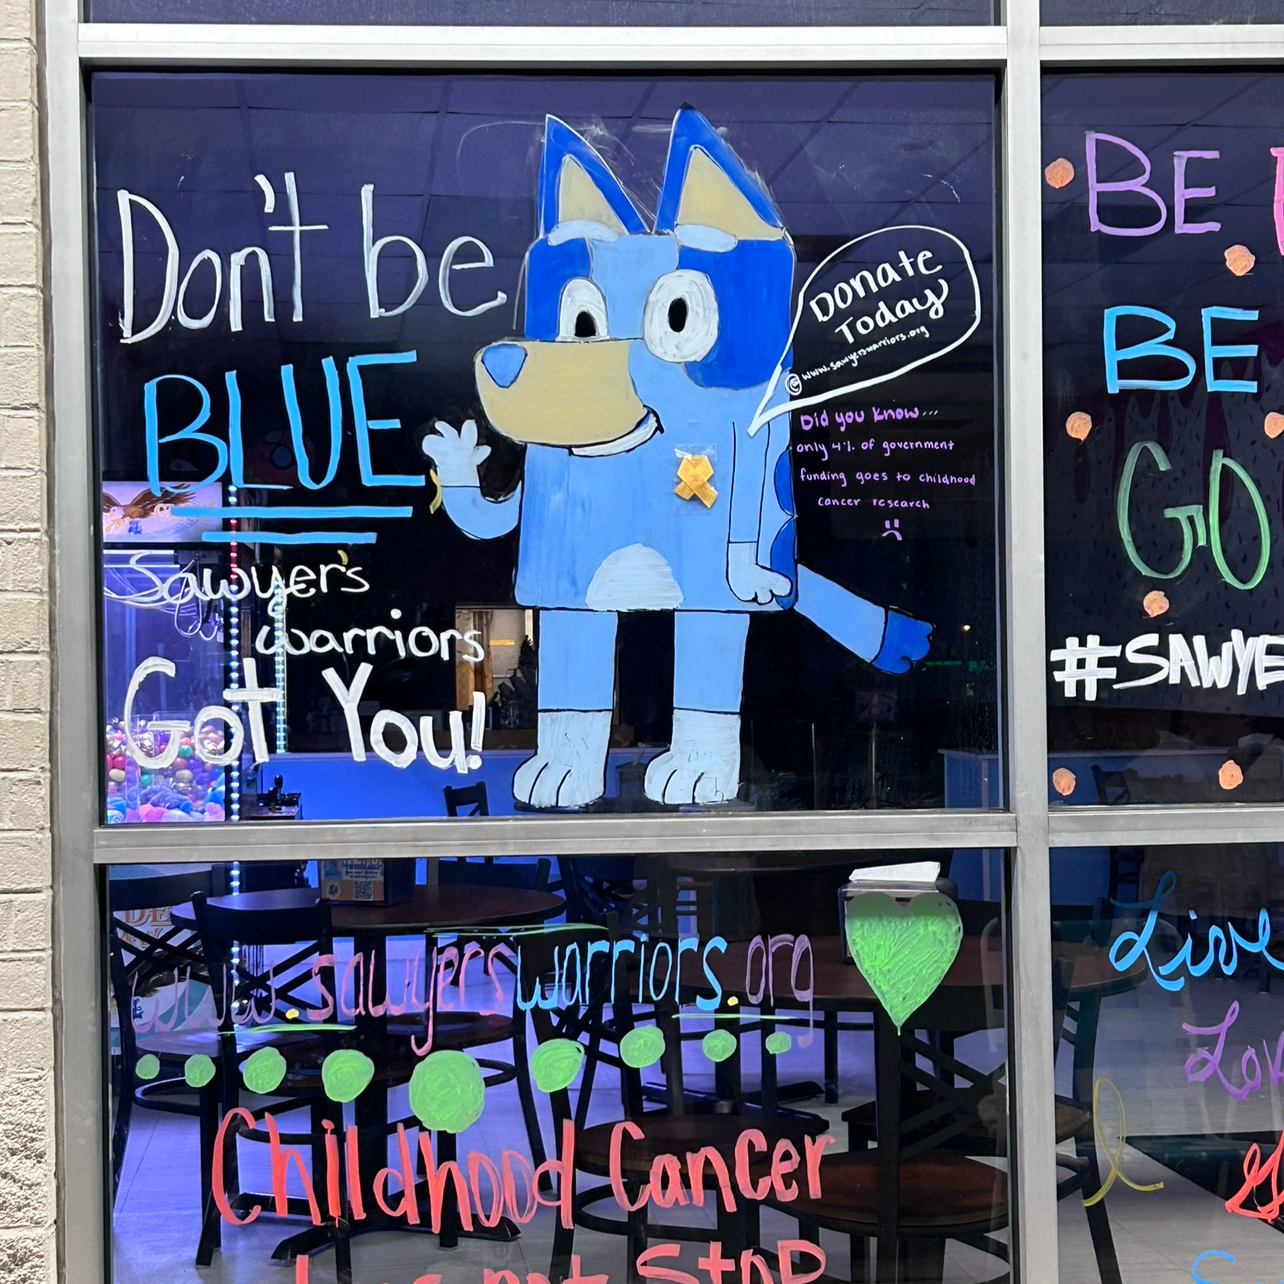 Don't be
BLUE
Sawyer's
warriors
Got You!
Donate
Today
@www.sawyerswarriors.org
Did you know...
only 4% of government
funding goes to childhood
cancer research
www.sawyerswarriors.org
Childhood Cancer
not Stop
BE
BE
GO
#SAWYE
Live